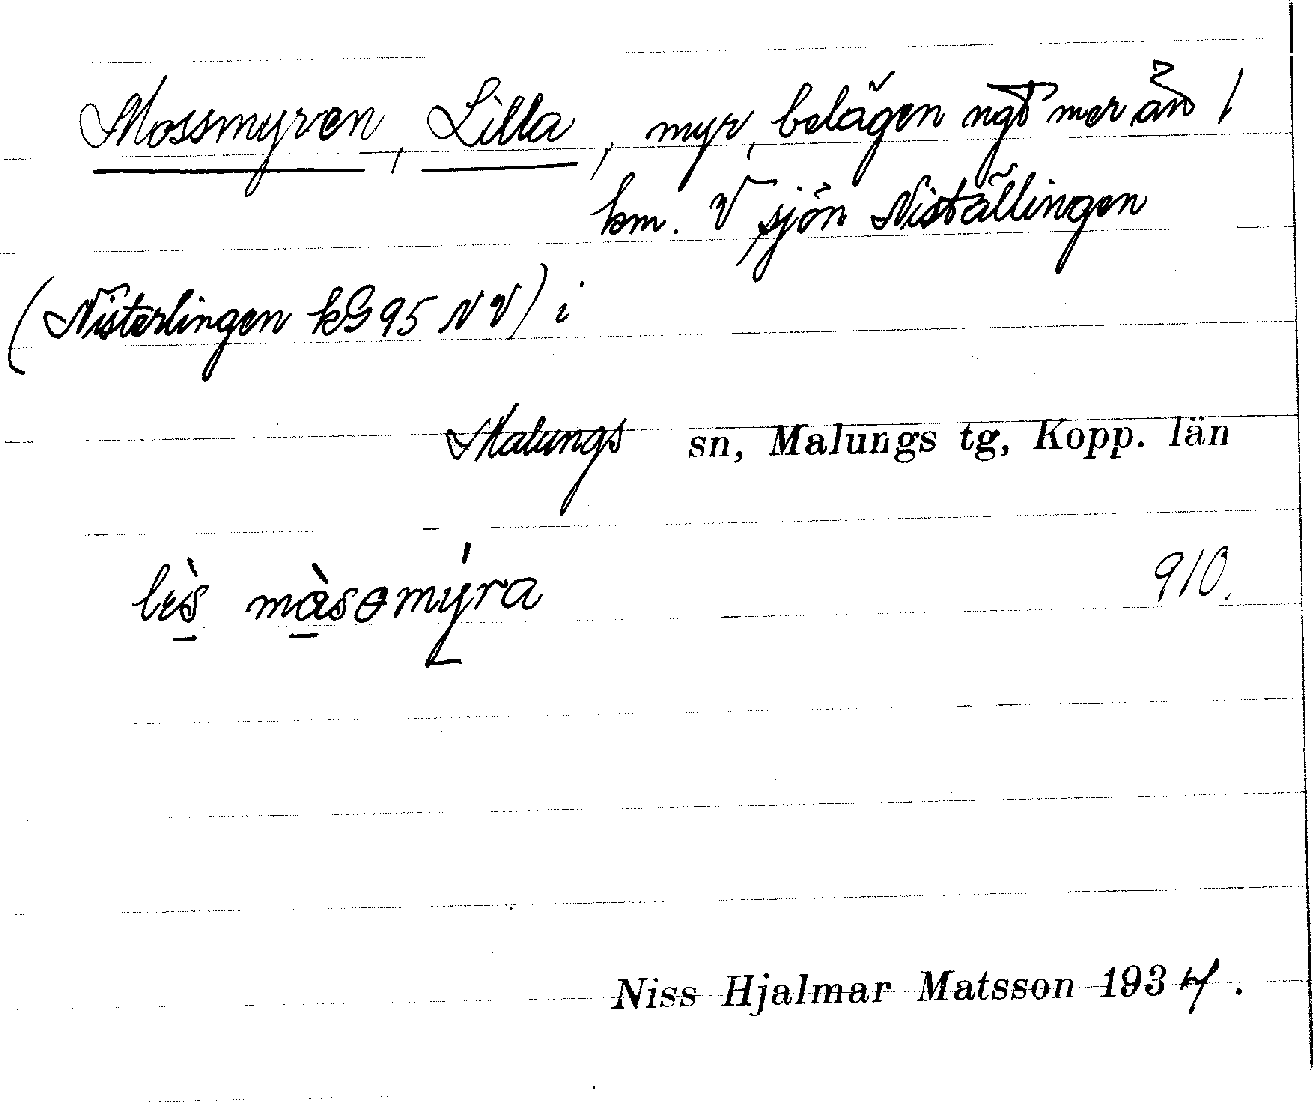 Mossmyren, Lilla, myr, belägen ngt mer än 1
km. V sjön Niställingen
(Nisterlingen kG 95 NV) i
Malungs sn, Malungs tg, Kopp. län
910.
Niss Hjalmar Matsson 1934.